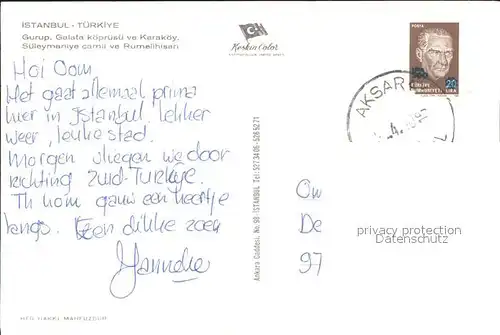 İSTANBUL - TÜRKİYE
Gurup, Galata köprüsü ve Karaköy.
Süleymaniye camii ve Rumelihisarı
Keskin Color
Hoi Oom,
Het gaat allemaal prima
hier in Istanbul. lekker
weer, leuke stad.
Morgen vliegen we door
richting Zuid-Turkije.
Ik kom gauw een keertje
langs. Een dikke zoen
Janneke
Ankara Caddesi, No. 98 - İSTANBUL
POSTA
20
LİRA
AKSAR
De
97
privacy protection
Datenschutz
HER HAKKI MAHFUZDUR